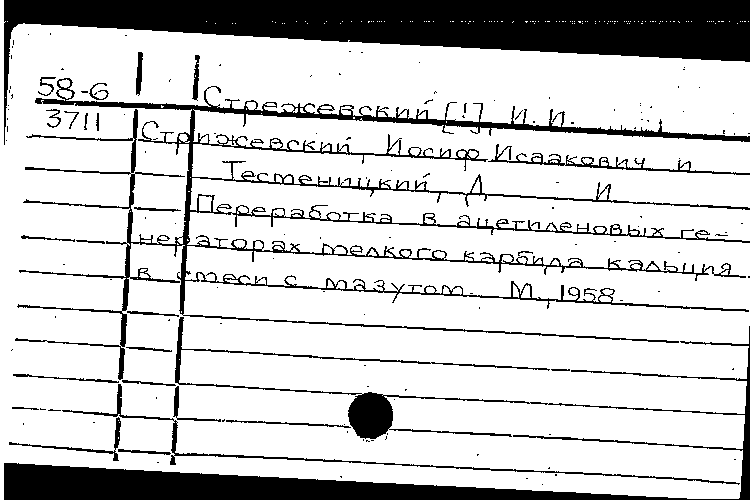 58-6
3711
Стрежевский [!], И. И.
Стрижевский, Иосиф Исаакович и
Тестеницкий, Д И
Переработка в ацетиленовых ге-
нераторах мелкого карбида кальция
в смеси с мазутом. М., 1958.